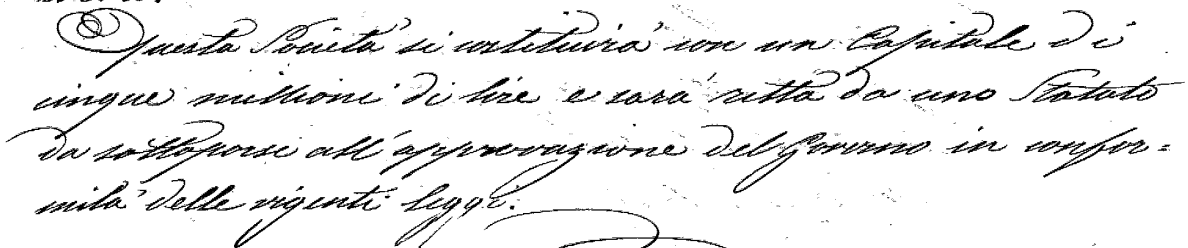 Questa Società si costituirà con un Capitale di
cinque millioni di lire e sarà retta da uno Statuto
da sottoporsi all'approvazione del Governo in confor=
mità delle vigenti leggi.